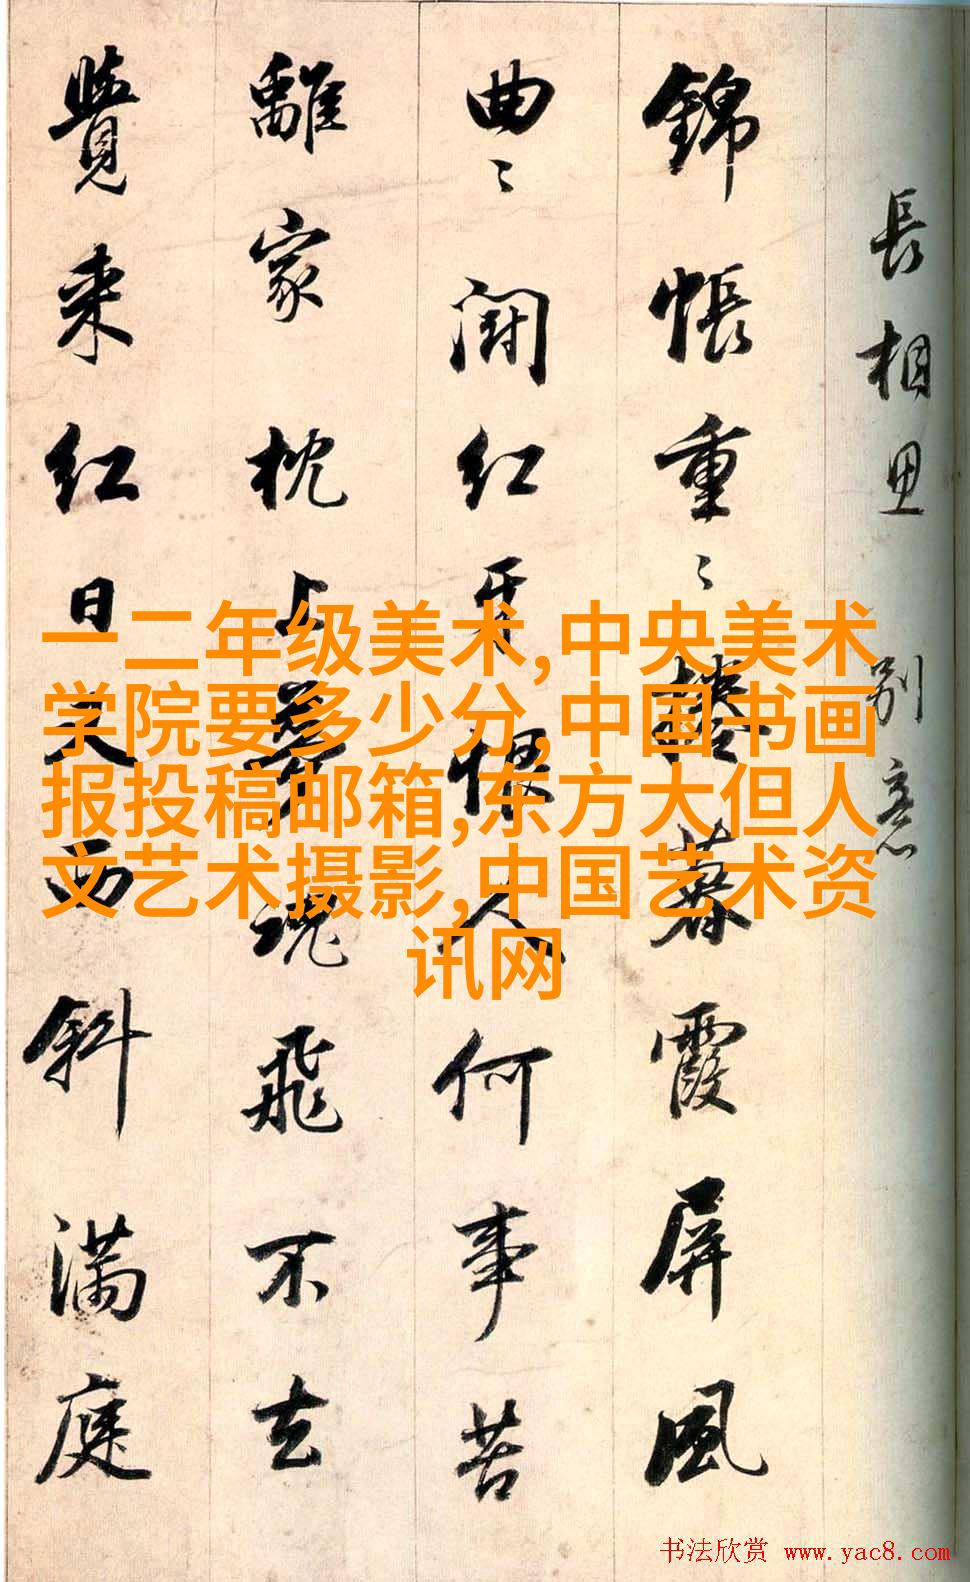 長相思 別意
錦帳重〻捲暮霞屏風
曲〻鬭红牙恨人何事苦
離家枕上夢魂飛不去
覺来红日又西斜满庭
一二年级美术,中央美术
学院要多少分,中国书画
报投稿邮箱,东方大但人
文艺术摄影,中国艺术资
讯网
书法欣赏 www.yac8.com